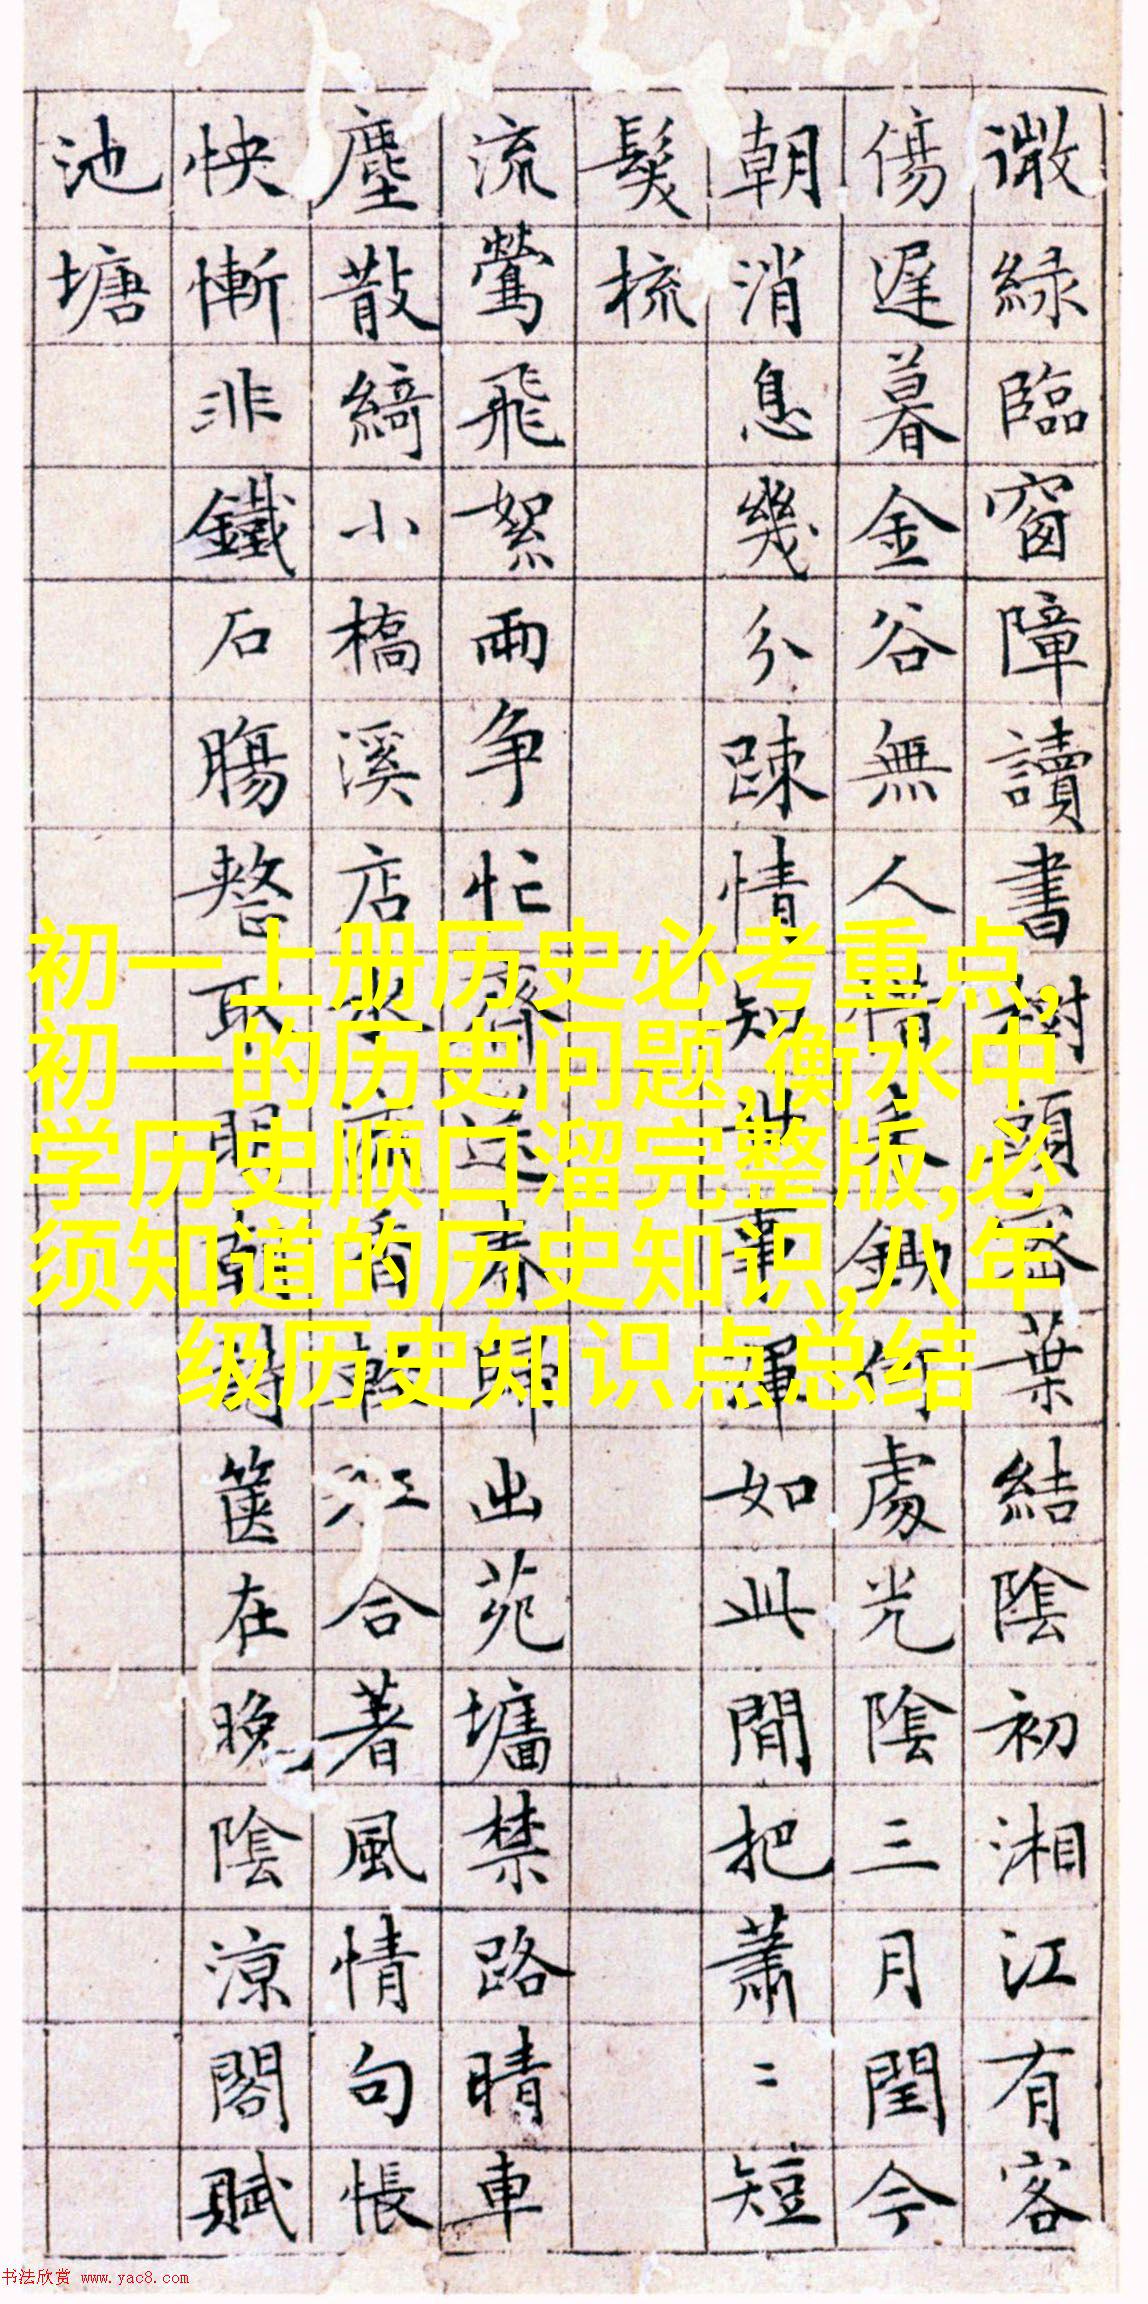 微綠臨窗障讀書樹頭密葉結陰初湘江有客
傷遲暮金谷無人鋤何處光陰三月閏今
朝消息幾分踈情知世事渾如此間把蕭〻短
鬓梳
流鶯飛絮兩争忙齊送春歸出苑墻禁路晴車
塵散綺小橋溪店水香江合著風情句悵
怏慚非鐵石腸整取明朝箧在晚陰涼閣賦
池塘
初一上册历史必考重点,
初一的历史问题,衡水中
学历史顺口溜完整版,必
须知道的历史知识,八年
级历史知识点总结
书法欣赏 www.yac8.com